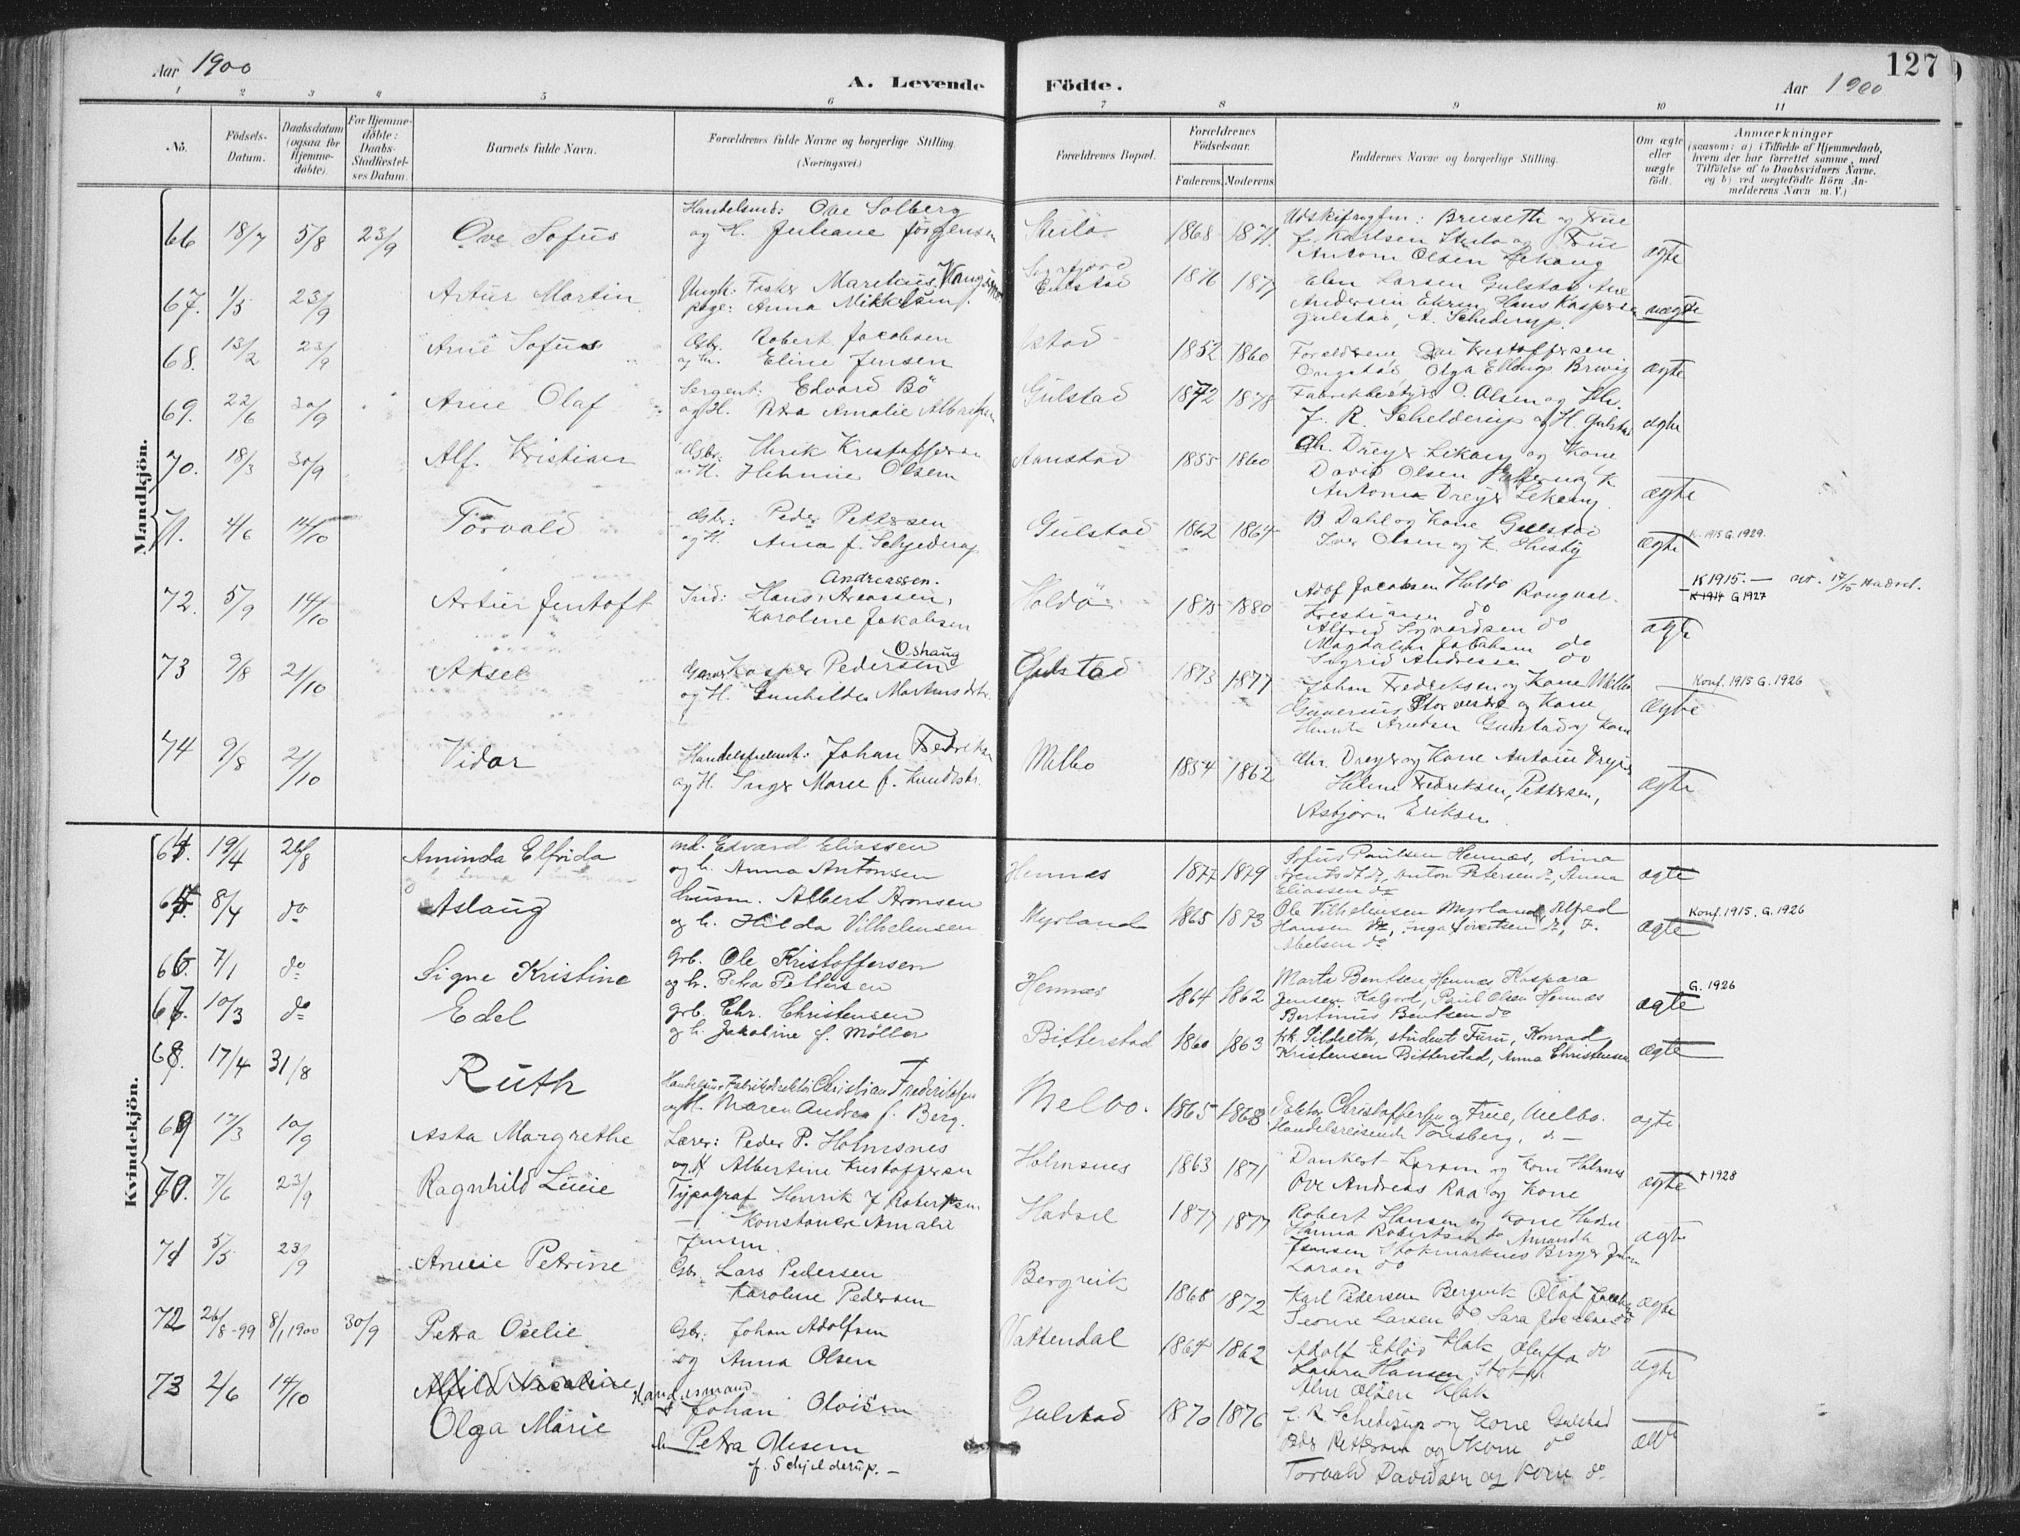 Aar 1900
A. Levende Födte.
127
Aar 1900
1 2 3 4 5 6 7 8 9 10 11
No.
Födsels-Datum.
Daabsdatum (ogsaa for Hjemmedöbte).
For Hjemmedöbte: Daabs-Stadfestelses Datum.
Barnets fulde Navn.
Forældrenes fulde Navne og borgerlige Stilling. (Næringsvei.)
Forældrenes Bopæl.
Forældrenes Födselsaar.
Faderens. Moderens.
Faddernes Navne og borgerlige Stilling.
Om ægte eller uægte födt.
Anmærkninger
(saasom: a) i Tilfælde af Hjemmedaab, hvem der har forrettet samme, med Tilföielse af to Daabsvidners Navne, og b) ved uægtefödte Börn Anmelderens Navn m. V.)
Mandkjön.
66 18/7 5/8 23/9 Ove Sofus
Ove Solberg
og H. Juliane Jörgensen
1868 1871
Brusetth og Frue
Antom Olsen Lekang
ægte
67. 1/5 23/9 Artur Martin
Anna Mikkelsen
Gulstad 1876 1877
Elen Larsen Gulstad
Andersen Hans Kaspersen
Gulstad, A. Schelderup.
uægte
68. 13/2 23/9 Arne Sofus
Gbr. Robert Jacobsen
og h. Eline Jensen
1852 1860
Forældrene, Kristoffersen
Olga Ellings
ægte
69. 22/6 30/9 Arne Olaf
Sergent: Edvard Bö
og H. Petra Amalie Albrigtsen
Gulstad 1872 1878
O. Olsen og Hr.
J. R. Schelderup og H. Gulstad
ægte
70. 18/3 30/9 Alf. Kristian
Gbr: Ulrik Kristoffersen
H. Helmine Olsen
Aanstad 1855 1860
Chr. Dreyer Lekang og Kone
David Olsen
Antonia Dreyer Lekang
ægte
71. 4/6 14/10 Torvald
Gbr: Peder Pettersen
og H. Anna f. Schjelderup
Gulstad 1862 1864
B Dahl og Kone Gulstad
Iver Olsen og K. Husby
ægte K. 1915 G. 1929.
72. 5/9 14/10 Artur Jentoft
Andreassen.
Ind: Hans Areassen,
Karoline Jakobsen
Holdö 1875 1880
Adof Jacobsen Holdö Rongval
Kristiansen do
Alfred Sivardsen do
Magdalene Jacobsen do
Sigrid Andressen do
ægte
K 1915. — 17/15 Hadsel.
K 1914 G 1927
73 9/8 21/10 Aksel
Oshaug
Kasper Pedersen
og H. Gunhilde Martinusdtr.
Gulstad 1873 1877
Johan Fredriksen og Kone Melbo
Henrik Arntsen Gulstad og Kone
ægte Konf. 1915 G. 1926
74 9/8 21/10 Vidar
Johan Fredriksen
og H. Inger Marie f. Knudtsdtr.
Melbo 1854 1862
Chr. Dreyer og Kone Antoine Dreyer
Helene Fredriksen, Pettersen,
Asbjörn Eriksen.
ægte
Kvindekjön.
64. 19/4 26/8 Aminda Elfrida
ind. Edvard Eliassen
og h. Anna Antonsen
Hennæs 1877 1879
Sofus Paulsen Hennæs, Lina
Anton Petersen do, Anna
Eliassen do
ægte
65. 8/4 do Aslaug
husm. Albert Aronsen
og h. Hilda Vilhelmsen
Myrland 1865 1873
Ole Vilhelmsen Myrland, Alfred
Hansen do, Inga Sivertsen do, J.
Abelsen do
ægte Konf. 1915. G. 1926
66. 7/1 do Signe Kristine
grb. Ole Kristoffersen
og h. Petra Pettersen
Hennæs 1864 1862
Marta Bentsen Hennæs Kaspara
Jensen Kalgord, Paul Olsen Hennæs
Bertinus Bentsen do
ægte G. 1926
67. 10/3 do Edel
grb. Chr. Christensen
og h. Jakobine f. Möller
Bitterstad 1860 1863
Sildseth, student Furu, Konrad
Kristensen Bitterstad, Anna Christensen
ægte
68. 17/4 31/8 Ruth
Fabrikdirektör Christian Frederiksen
og H. Maren Andrea f. Berg.
Melbo. 1865 1868
Doktor Christoffersen og Frue, Melbo.
Handelsreisende Tönsberg, do —
ægte
69 17/3 10/9 Asta Margrethe
Lærer: Peder P. Holmsnes
og H Albertine Kristoffersen
Holmsnes 1863 1871
Dankert Larsen og Kone Holmsnes
Ove Andreas Raa og Kone
ægte + 1928
70. 7/6 23/9 Ragnhild Lucie
Typograf Henrik J Robertsen
— Konstance Amalie
Jensen.
Hadsel 1877 1877
Robert Hansen og Kone Hadsel
Hanna Robertsen do Amanda
Jensen Stokmarknes Birger Johan
Larsen do
ægte
71 5/5 23/9 Amelie Petrine
Gbr. Lars Pedersen
Karoline Pedersen
Bergvik 1868 1872
Karl Pedersen Bergvik Olaf Jacobsen
Leonie Larsen do Sara
ægte
72 26/8-99 8/1 1900 30/9 Petra Ocelie
Gbr: Johan Adolfsen
og Anna Olsen
Vattendal 1864 1862
Adolf Klak, Oluffa do
Laura Hansen Stokm
Olsen Klak
ægte
73 2/6 14/10 Alfild Nicoline
Olga Marie
Handesmand
Johan Oloisen
h Petra Olesem
f. Schjelderup. —
Gulstad 1870 1876
J. R Schelderup og Kone Gulstad
Peder Pettersen og Kone do
Torvald Davidsen og Kone do